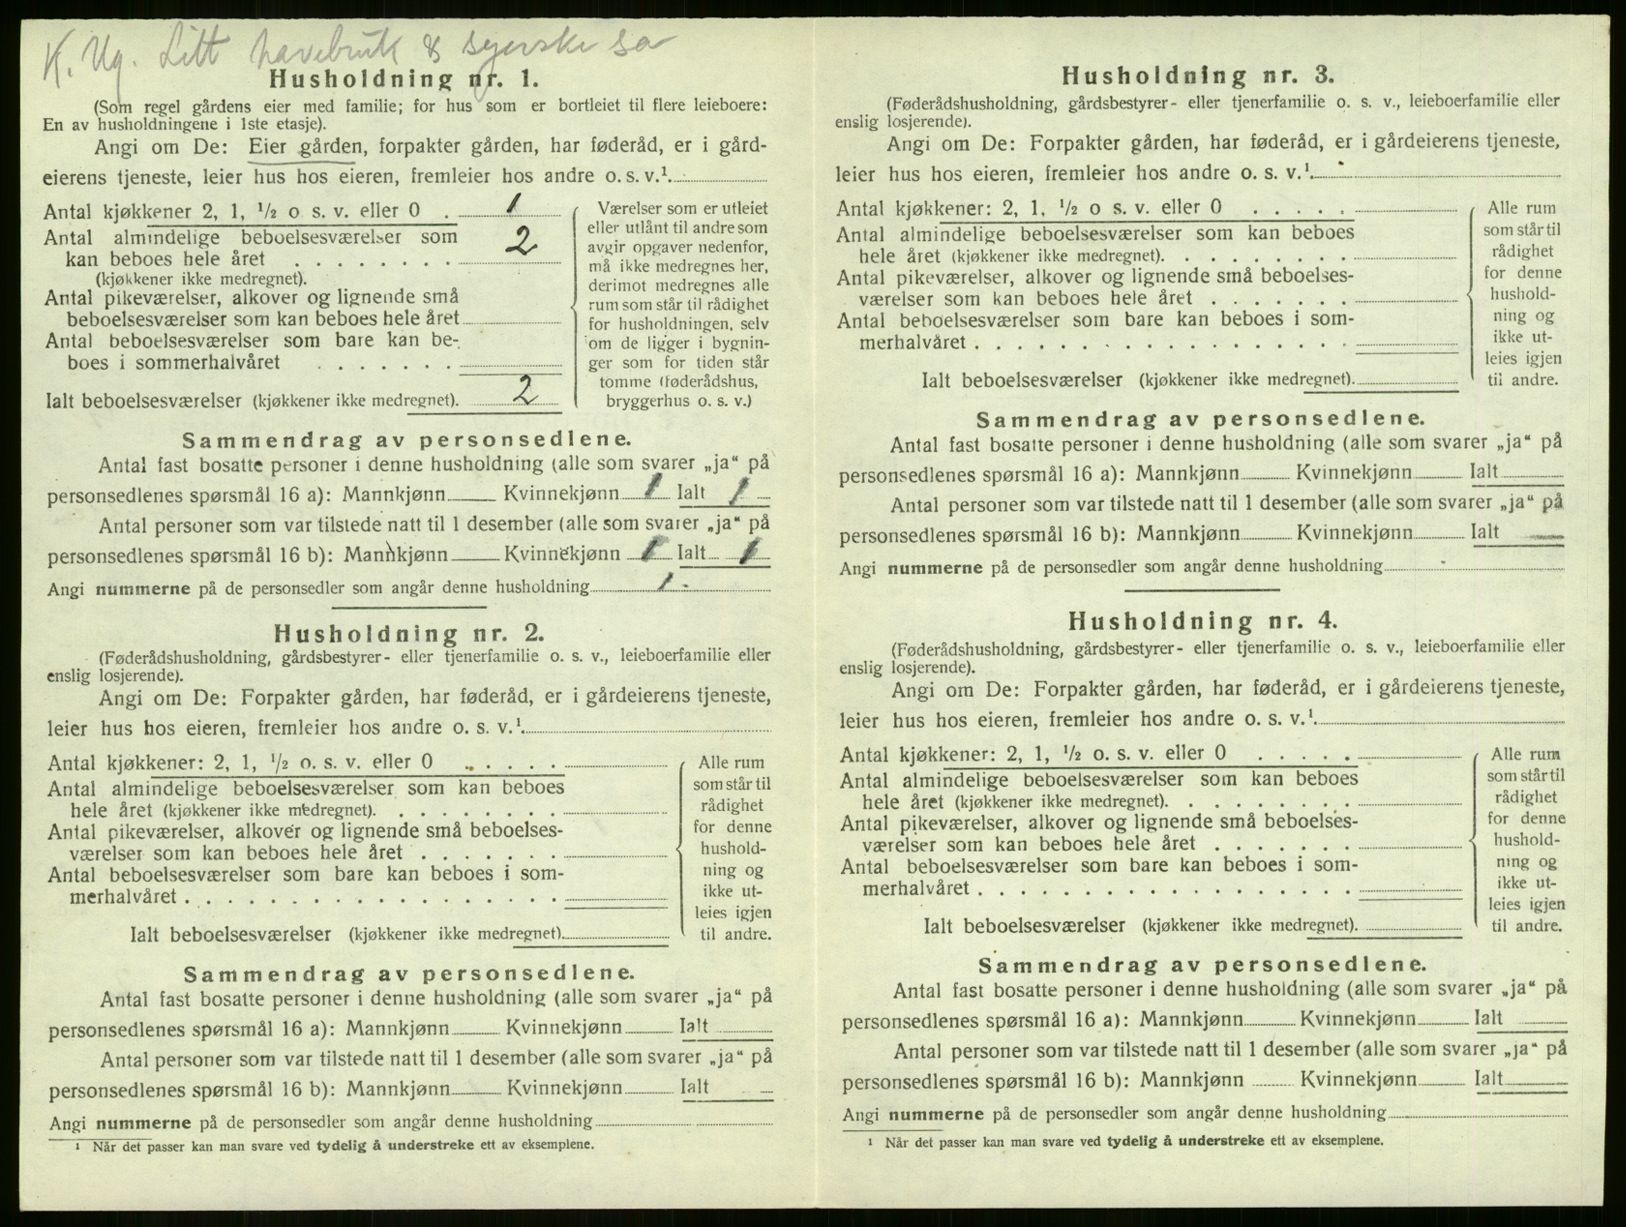 K. Ug. Litt havebruk & syerske sa
Husholdning nr. 1.
(Som regel gårdens eier med familie; for hus som er bortleiet til flere leieboere:
En av husholdningene i 1ste etasje).
Angi om De: Eier gården, forpakter gården, har føderåd, er i gård-
eierens tjeneste, leier hus hos eieren, fremleier hos andre o. s. v.¹.
Antal kjøkkener 2, 1, ½ o s. v. eller 0 . 1
Antal almindelige beboelsesværelser som 2
kan beboes hele året . . . . . . . .
(kjøkkener ikke medregnet).
Antal pikeværelser, alkover og lignende små
beboelsesværelser som kan beboes hele året
Antal beboelsesværelser som bare kan be-
boes i sommerhalvåret . . . . . . .
Ialt beboelsesværelser (kjøkkener ikke medregnet). 2
Værelser som er utleiet
eller utlånt til andre som
avgir opgaver nedenfor,
må ikke medregnes her,
derimot medregnes alle
rum som står til rådighet
for husholdningen, selv
om de ligger i bygnin-
ger som for tiden står
tomme (føderådshus,
bryggerhus o. s. v.)
Sammendrag av personsedlene.
Antal fast bosatte personer i denne husholdning (alle som svarer „ja“ på
personsedlenes spørsmål 16 a): Mannkjønn Kvinnekjønn 1 Ialt 1
Antal personer som var tilstede natt til 1 desember (alle som svarer „ja“ på
personsedlenes spørsmål 16 b): Mannkjønn Kvinnekjønn 1 Ialt 1
Angi nummerne på de personsedler som angår denne husholdning 1.
Husholdning nr. 2.
(Føderådshusholdning, gårdsbestyrer- eller tjenerfamilie o. s. v., leieboerfamilie eller
enslig losjerende).
Angi om De: Forpakter gården, har føderåd, er i gårdeierens tjeneste,
leier hus hos eieren, fremleier hos andre o. s. v.¹.
Antal kjøkkener: 2, 1, ½ o. s. v. eller 0 . . . . .
Antal almindelige beboelsesværelser som kan beboes
hele året (kjøkkener ikke medregnet). . . . . . . . .
Antal pikeværelser, alkover og lignende små beboelses-
værelser som kan beboes hele året . . . . . . .
Antal beboelsesværelser som bare kan beboes i som-
merhalvåret . . . . . . . . . . . . . . . . . .
Ialt beboelsesværelser (kjøkkener ikke medregnet).
Alle rum
som står til
rådighet
for denne
hushold-
ning og
ikke ut-
leies igjen
til andre.
Sammendrag av personsedlene.
Antal fast bosatte personer i denne husholdning (alle som svarer „ja“ på
personsedlenes spørsmål 16 a): Mannkjønn Kvinnekjønn Ialt
Antal personer som var tilstede natt til 1 desember (alle som svarer „ja“ på
personsedlenes spørsmål 16 b): Mannkjønn Kvinnekjønn Ialt
Angi nummerne på de personsedler som angår denne husholdning
¹ Når det passer kan man svare ved tydelig å understreke ett av eksemplene.
Husholdning nr. 3.
(Føderådshusholdning, gårdsbestyrer- eller tjenerfamilie o. s. v., leieboerfamilie eller
enslig losjerende).
Angi om De: Forpakter gården, har føderåd, er i gårdeierens tjeneste,
leier hus hos eieren, fremleier hos andre o. s. v.¹.
Antal kjøkkener: 2, 1, ½ o s. v. eller 0 . . . . .
Antal almindelige beboelsesværelser som kan beboes
hele året (kjøkkener ikke medregnet). . . . . . . . .
Antal pikeværelser, alkover og lignende små beboelses-
værelser som kan beboes hele året . . . . . . .
Antal beboelsesværelser som bare kan beboes i som-
merhalvåret . . . . . . . . . . . . . . . . . .
Ialt beboelsesværelser (kjøkkener ikke medregnet).
Alle rum
som står til
rådighet
for denne
hushold-
ning og
ikke ut-
leies igjen
til andre.
Sammendrag av personsedlene.
Antal fast bosatte personer i denne husholdning (alle som svarer „ja“ på
personsedlenes spørsmål 16 a): Mannkjønn Kvinnekjønn Ialt
Antal personer som var tilstede natt til 1 desember (alle som svarer „ja“ på
personsedlenes spørsmål 16 b): Mannkjønn Kvinnekjønn Ialt
Angi nummerne på de personsedler som angår denne husholdning
Husholdning nr. 4.
(Føderådshusholdning, gårdsbestyrer- eller tjenerfamilie o. s. v., leieboerfamilie eller
enslig losjerende).
Angi om De: Forpakter gården, har føderåd, er i gårdeierens tjeneste,
leier hus hos eieren, fremleier hos andre o. s. v.¹.
Antal kjøkkener: 2, 1, ½ o. s. v. eller 0 . . . . .
Antal almindelige beboelsesværelser som kan beboes
hele året (kjøkkener ikke medregnet). . . . . . . . .
Antal pikeværelser, alkover og lignende små beboelses-
værelser som kan beboes hele året . . . . . . .
Antal beboelsesværelser som bare kan beboes i som-
merhalvåret . . . . . . . . . . . . . . . . . .
Ialt beboelsesværelser (kjøkkener ikke medregnet).
Alle rum
som står til
rådighet
for denne
hushold-
ning og
ikke ut-
leies igjen
til andre.
Sammendrag av personsedlene.
Antal fast bosatte personer i denne husholdning (alle som svarer „ja“ på
personsedlenes spørsmål 16 a): Mannkjønn Kvinnekjønn Ialt
Antal personer som var tilstede natt til 1 desember (alle som svarer „ja“ på
personsedlenes spørsmål 16 b): Mannkjønn Kvinnekjønn Ialt
Angi nummerne på de personsedler som angår denne husholdning
¹ Når det passer kan man svare ved tydelig å understreke ett av eksemplene.